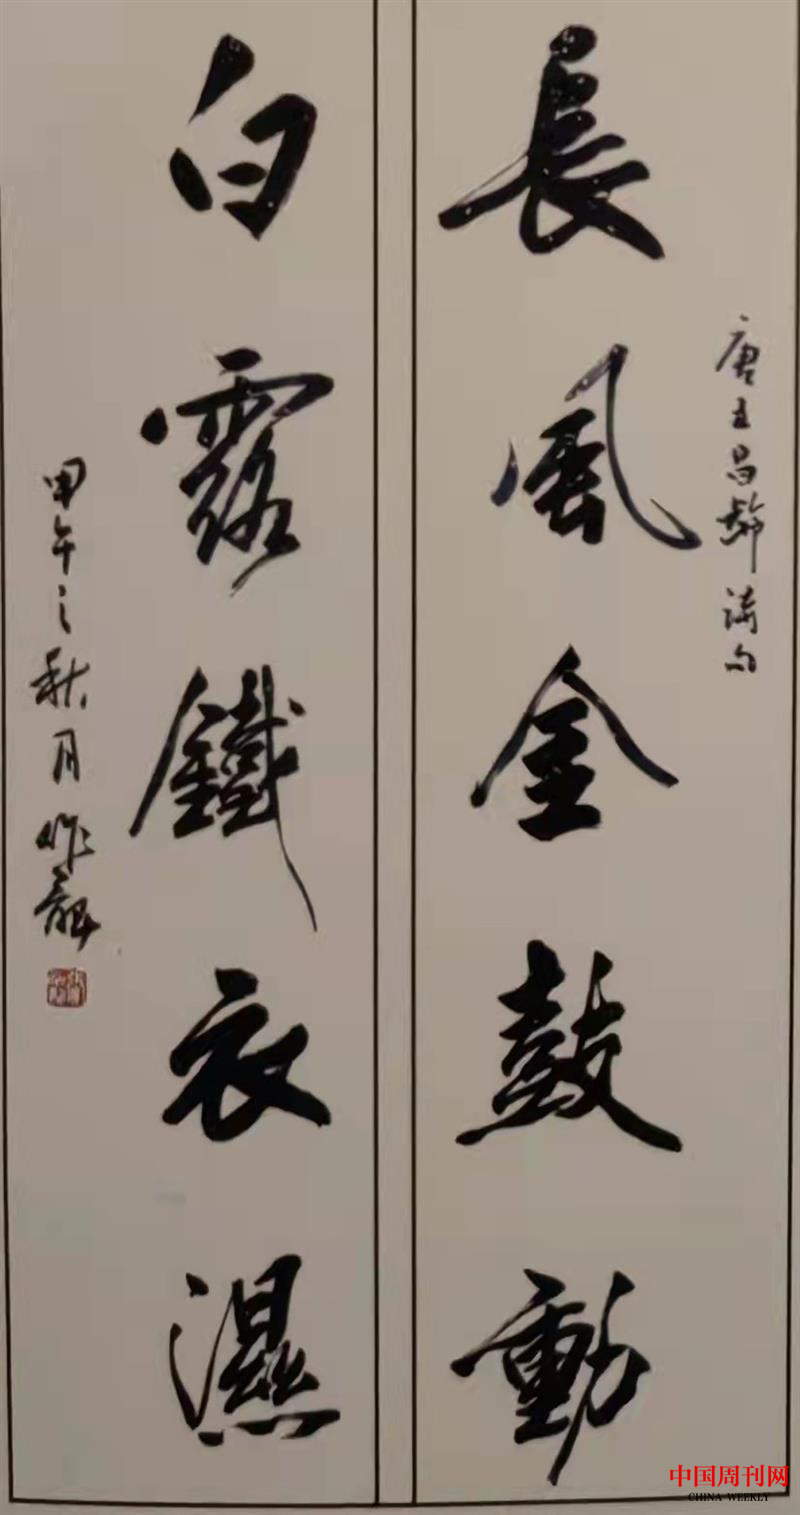 唐王昌龄诗句
長風金鼓動
白露鐵衣濕
甲午之秋月作龢
中国周刊网
CHINA WEEKLY